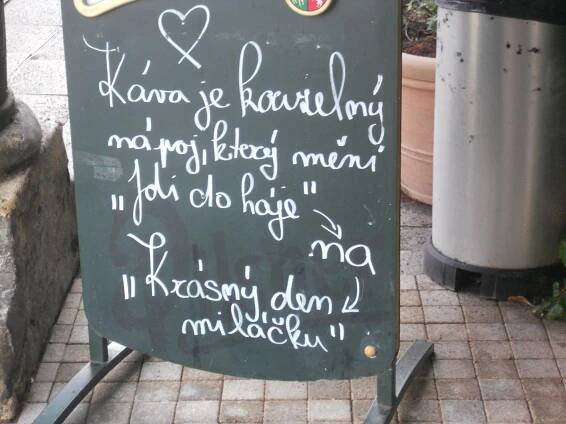 Káva je kouzelný
nápoj, který mění
"Jdi do háje"
na
"Krásný den
miláčku"